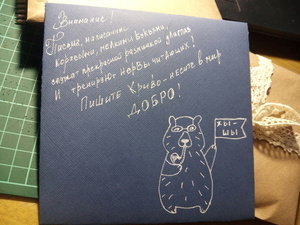 Внимание!
Письма, написанные
корявыми, мелкими буквами,
служат прекрасной разминкой для глаз
И тренируют нервы читающих!
Пишите Криво - несите в мир
ДОБРО!
ХЫ-
ЩЫ